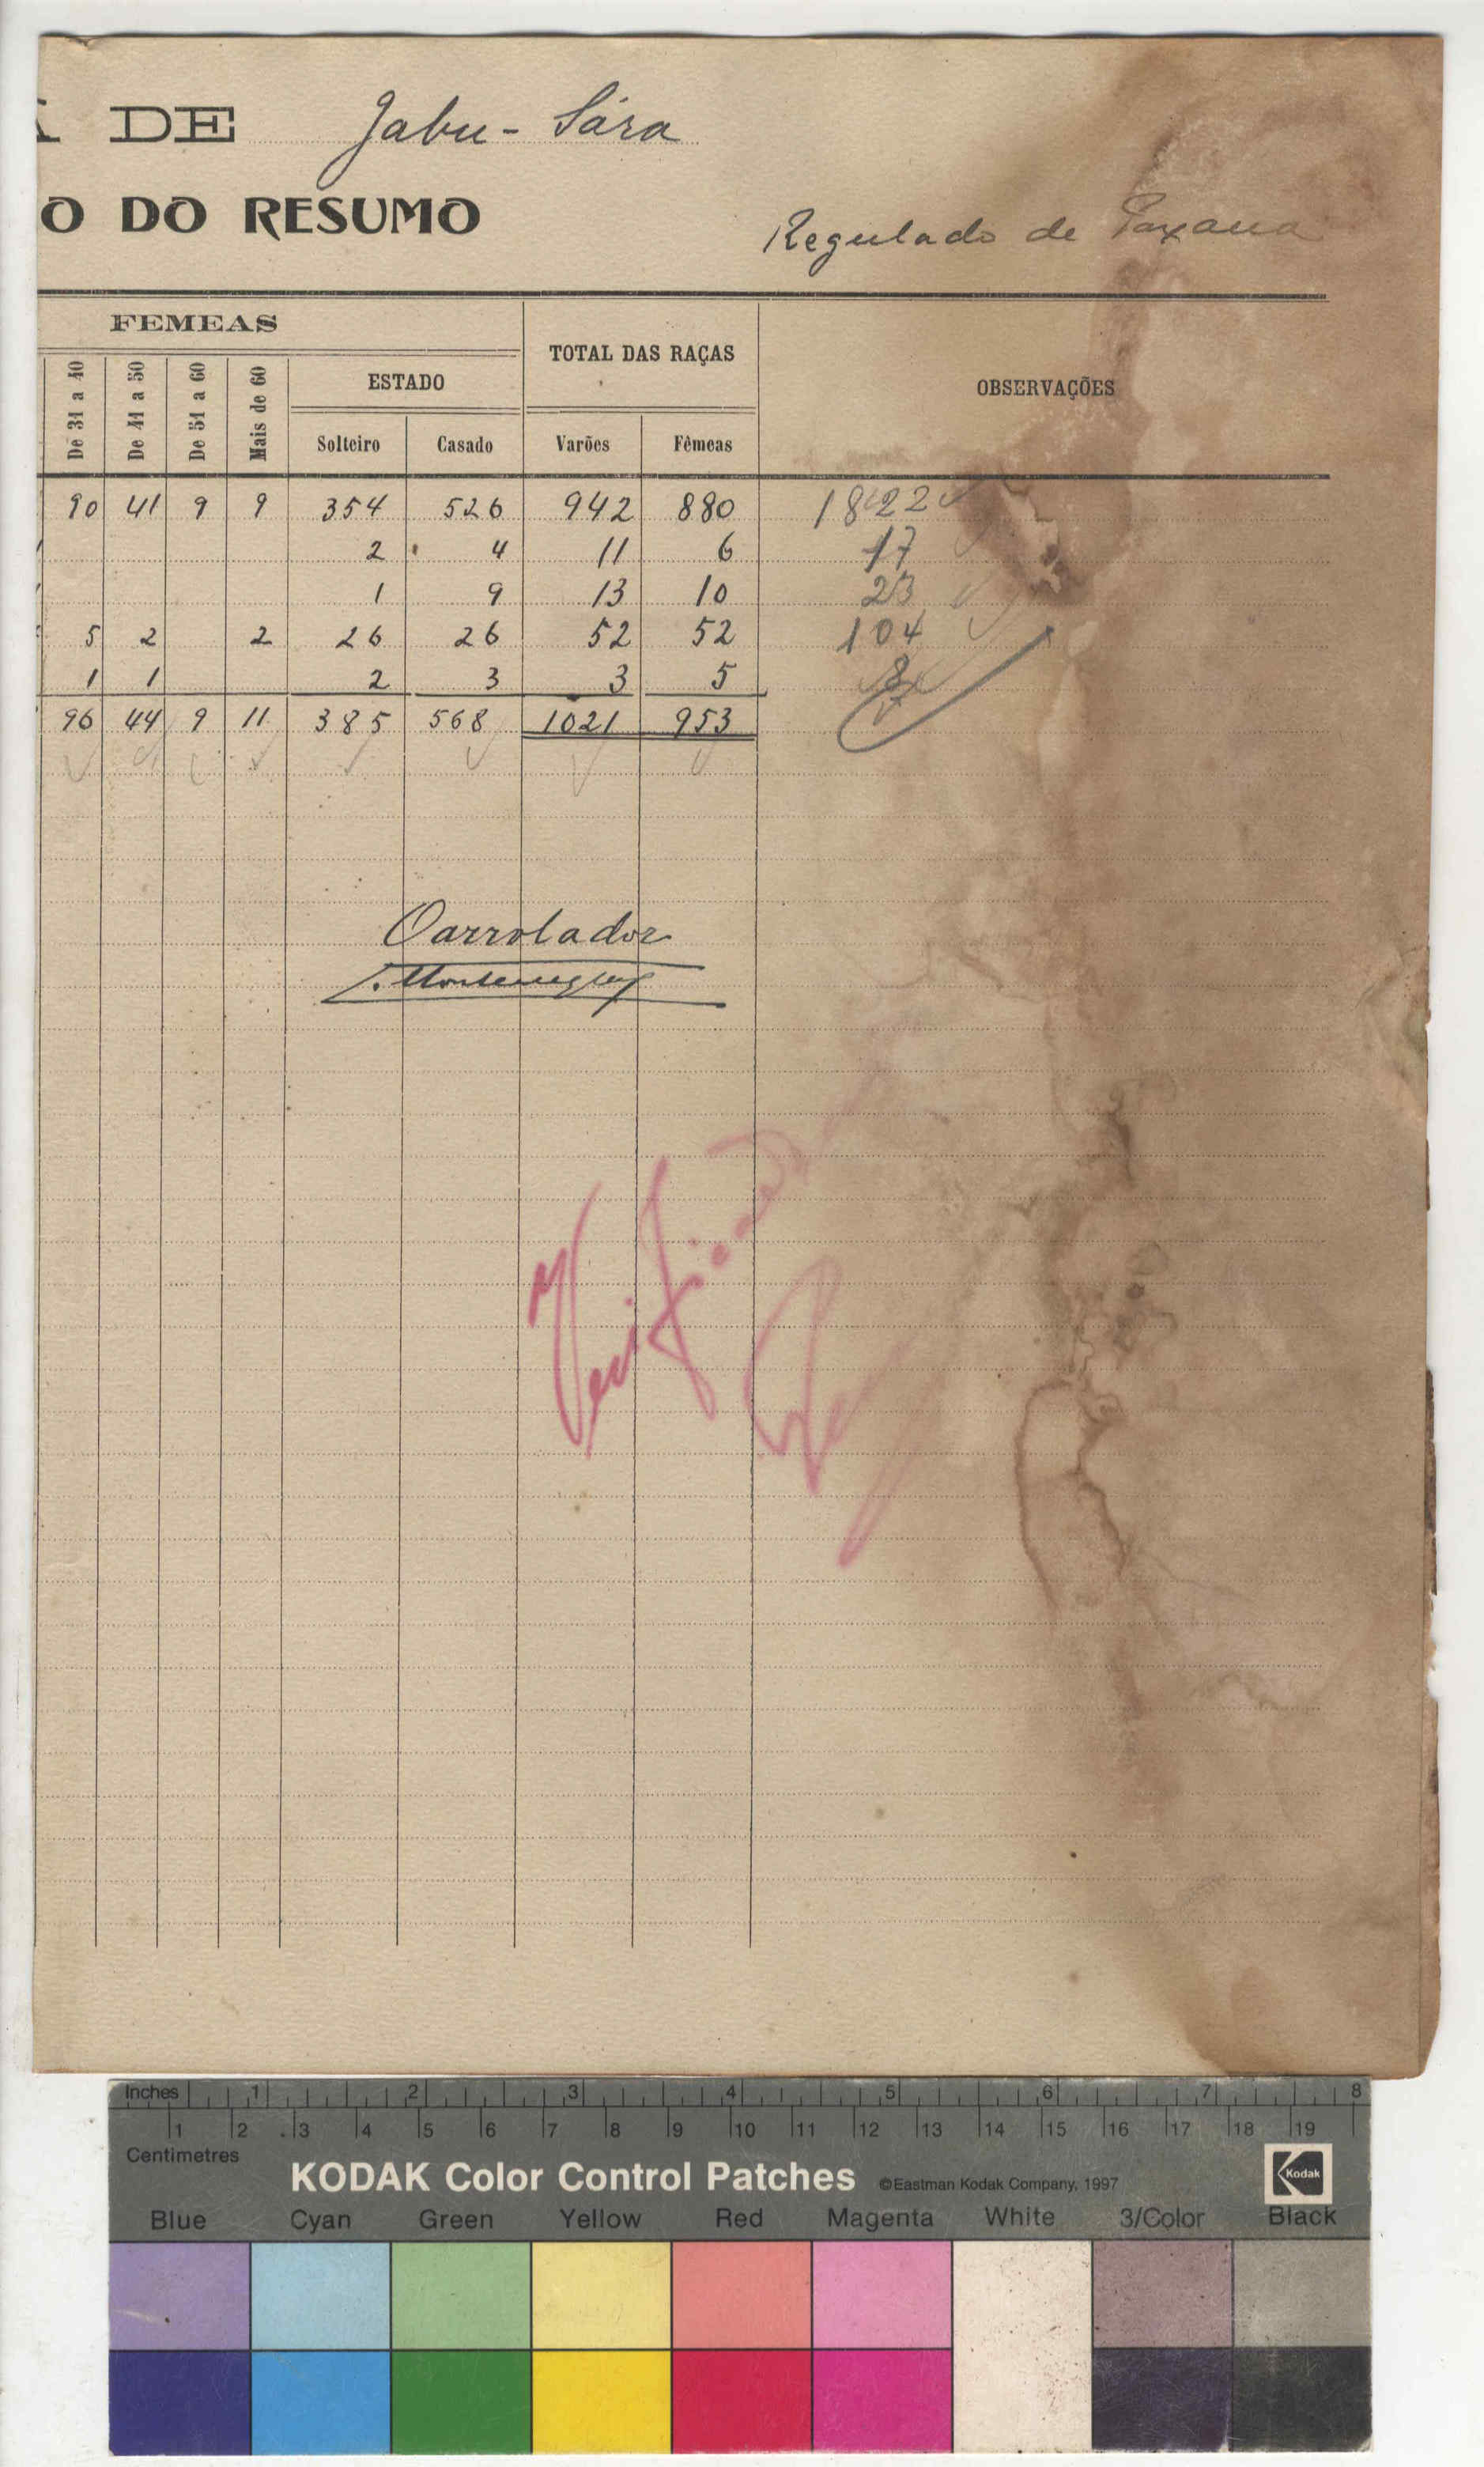 DE Gabu - Sára
O DO RESUMO
Regulado de Paxana
FEMEAS
TOTAL DAS RAÇAS
OBSERVAÇÕES
De 31 a 40
De 41 a 50
De 51 a 60
Mais de 60
ESTADO
Solteiro Casado Varões Fêmeas
90 41 9 9 354 526 942 880 1822
2 4 11 6 17
1 9 13 10 23
5 2 2 26 26 52 52 104
1 1 2 3 3 5 8
96 44 9 11 385 568 1021 953
O arrolador
Inches 1 2 3 4 5 6 7 8
1 2 3 4 5 6 7 8 9 10 11 12 13 14 15 16 17 18 19
Centimetres
KODAK Color Control Patches ©Eastman Kodak Company, 1997 Kodak
Blue Cyan Green Yellow Red Magenta White 3/Color Black